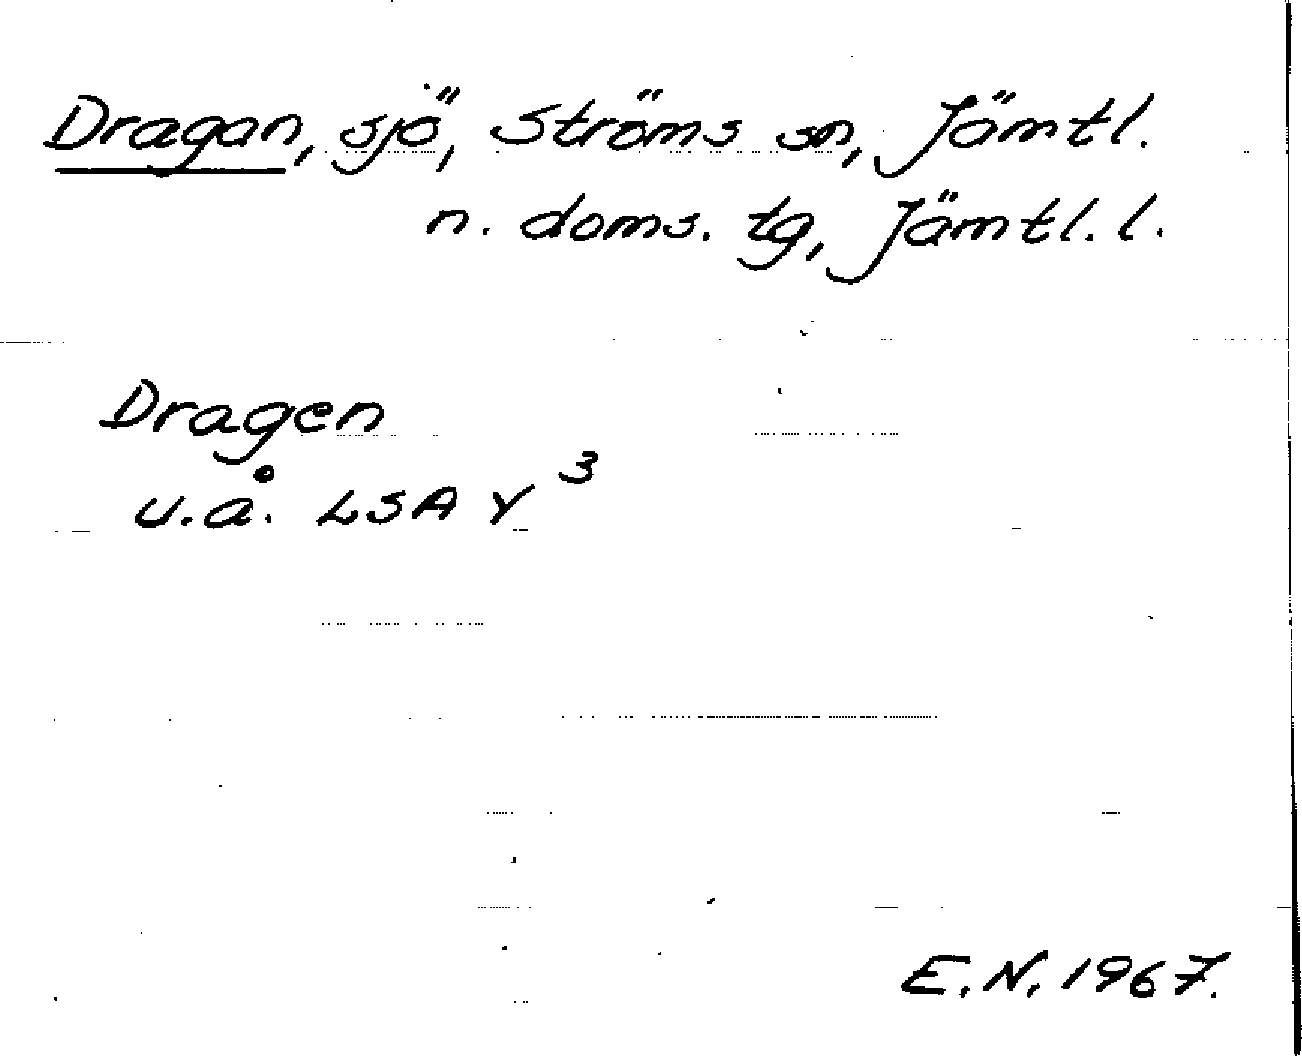 Dragan, sjö, Ströms sn, Jämtl.
n. doms. tg, Jämtl. l.
Dragen
u.å. LSA Y 3
E.N. 1967.